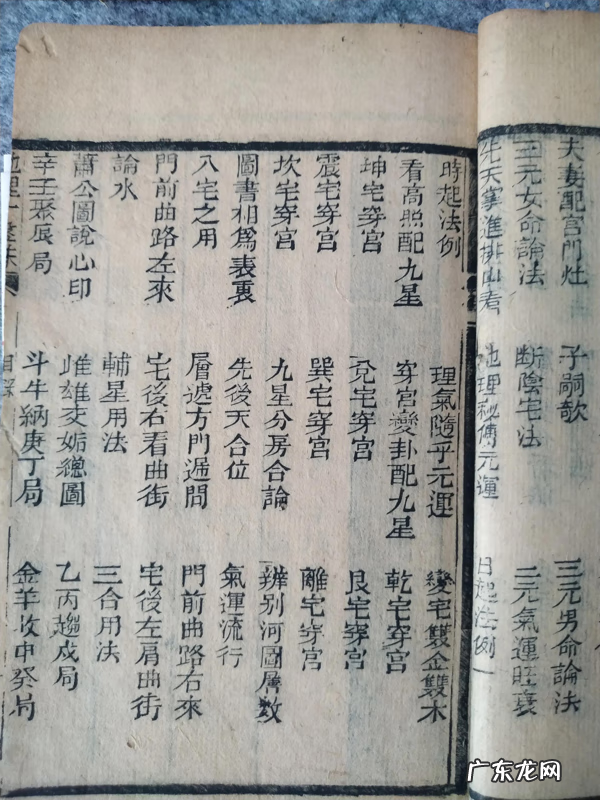 夫妻配宮門灶 子嗣歌 三元男命論法
三元女命論法 断陰宅法 三元氣運旺衰
先天掌進排山看 地理秘傳元運 日起法例
時起法例 理氣隨乎元運 變宅雙金雙木
看高照配九星 穿宮變卦配九星 乾宅穿宮
坤宅穿宮 兌宅穿宮 艮宅穿宮
震宅穿宮 巽宅穿宮 離宅穿宮
坎宅穿宮 九星分房合論 辨别河圖層数
圖書相為表裏 先後天合位 氣運流行
八宅之用 層遞方門遁間 門前曲路右來
門前曲路左來 宅後右看曲街 宅後左肩曲街
論水 輔星用法 三合用法
蕭公圖說心印 雌雄交媾總圖 乙丙趨戍局
辛壬聚辰局 斗牛納庚丁局 金羊收申癸局
地理 目錄
广东龙网